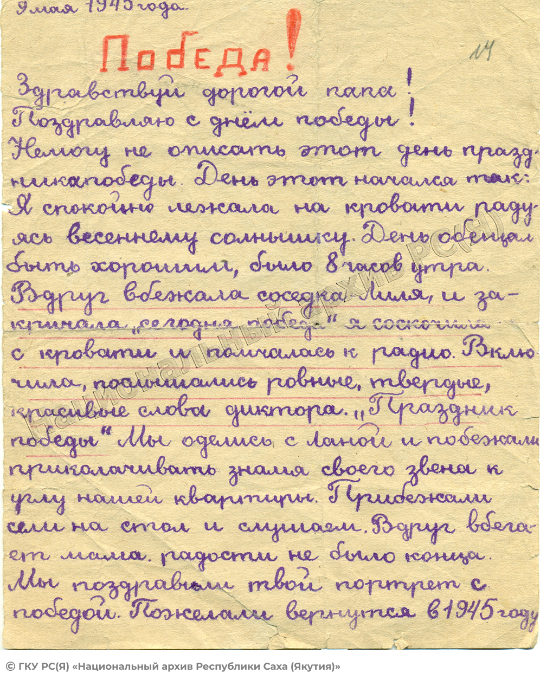 9 мая 1945 года.
Победа!
14
Здравствуй дорогой папа!
Поздравляю с днём победы!
Немогу не описать этот день празд-
никапобеды. День этот начался так:
Я спокойно лежала на кровати раду-
ясь весеннему солнышку. День обещал
быть хорошим, было 8 часов утра.
Вдруг вбежала соседка Лиля, и за-
кричала „сегодня победа" я соскочила
с кровати и помчалась к радио. Вклю-
чила, послышались ровные, твердые,
красивые слова диктора. „Праздник
победы" Мы оделись с Ланой и побежали
приколачивать знамя своего звена к
углу нашей квартиры. Прибежали
сели на стол и слушаем. Вдруг вбега-
ет мама. радости не было конца.
Мы поздравили твой портрет с
победой. Пожелали вернутся в 1945 году
Национальный архив РС(Я)
© ГКУ РС(Я) «Национальный архив Республики Саха (Якутия)»